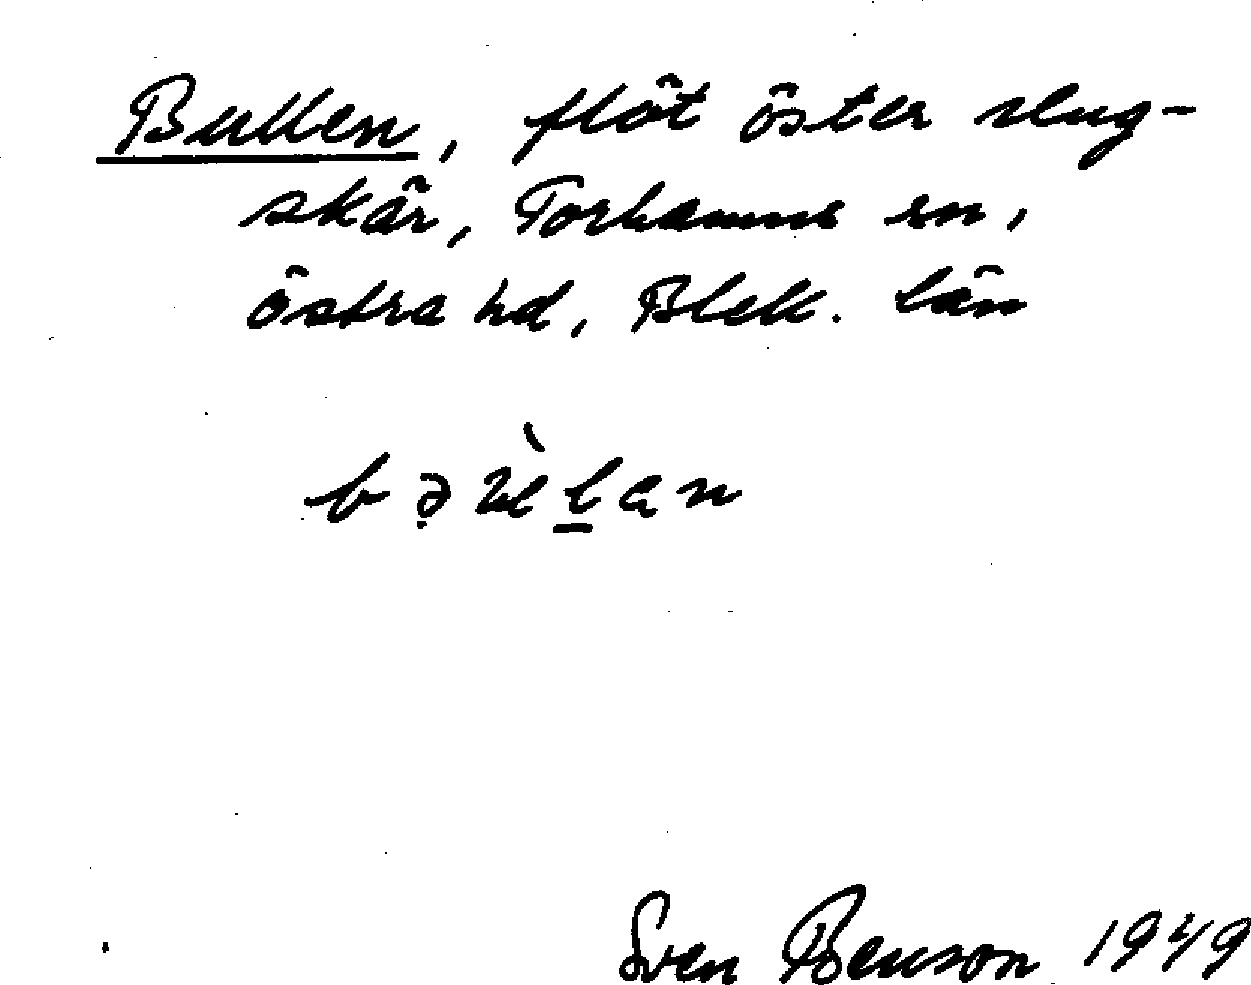 Bullen, flöt öster slug-
skär, Torhamns sn,
östra hd, Blek. län
Sven Benson 1949